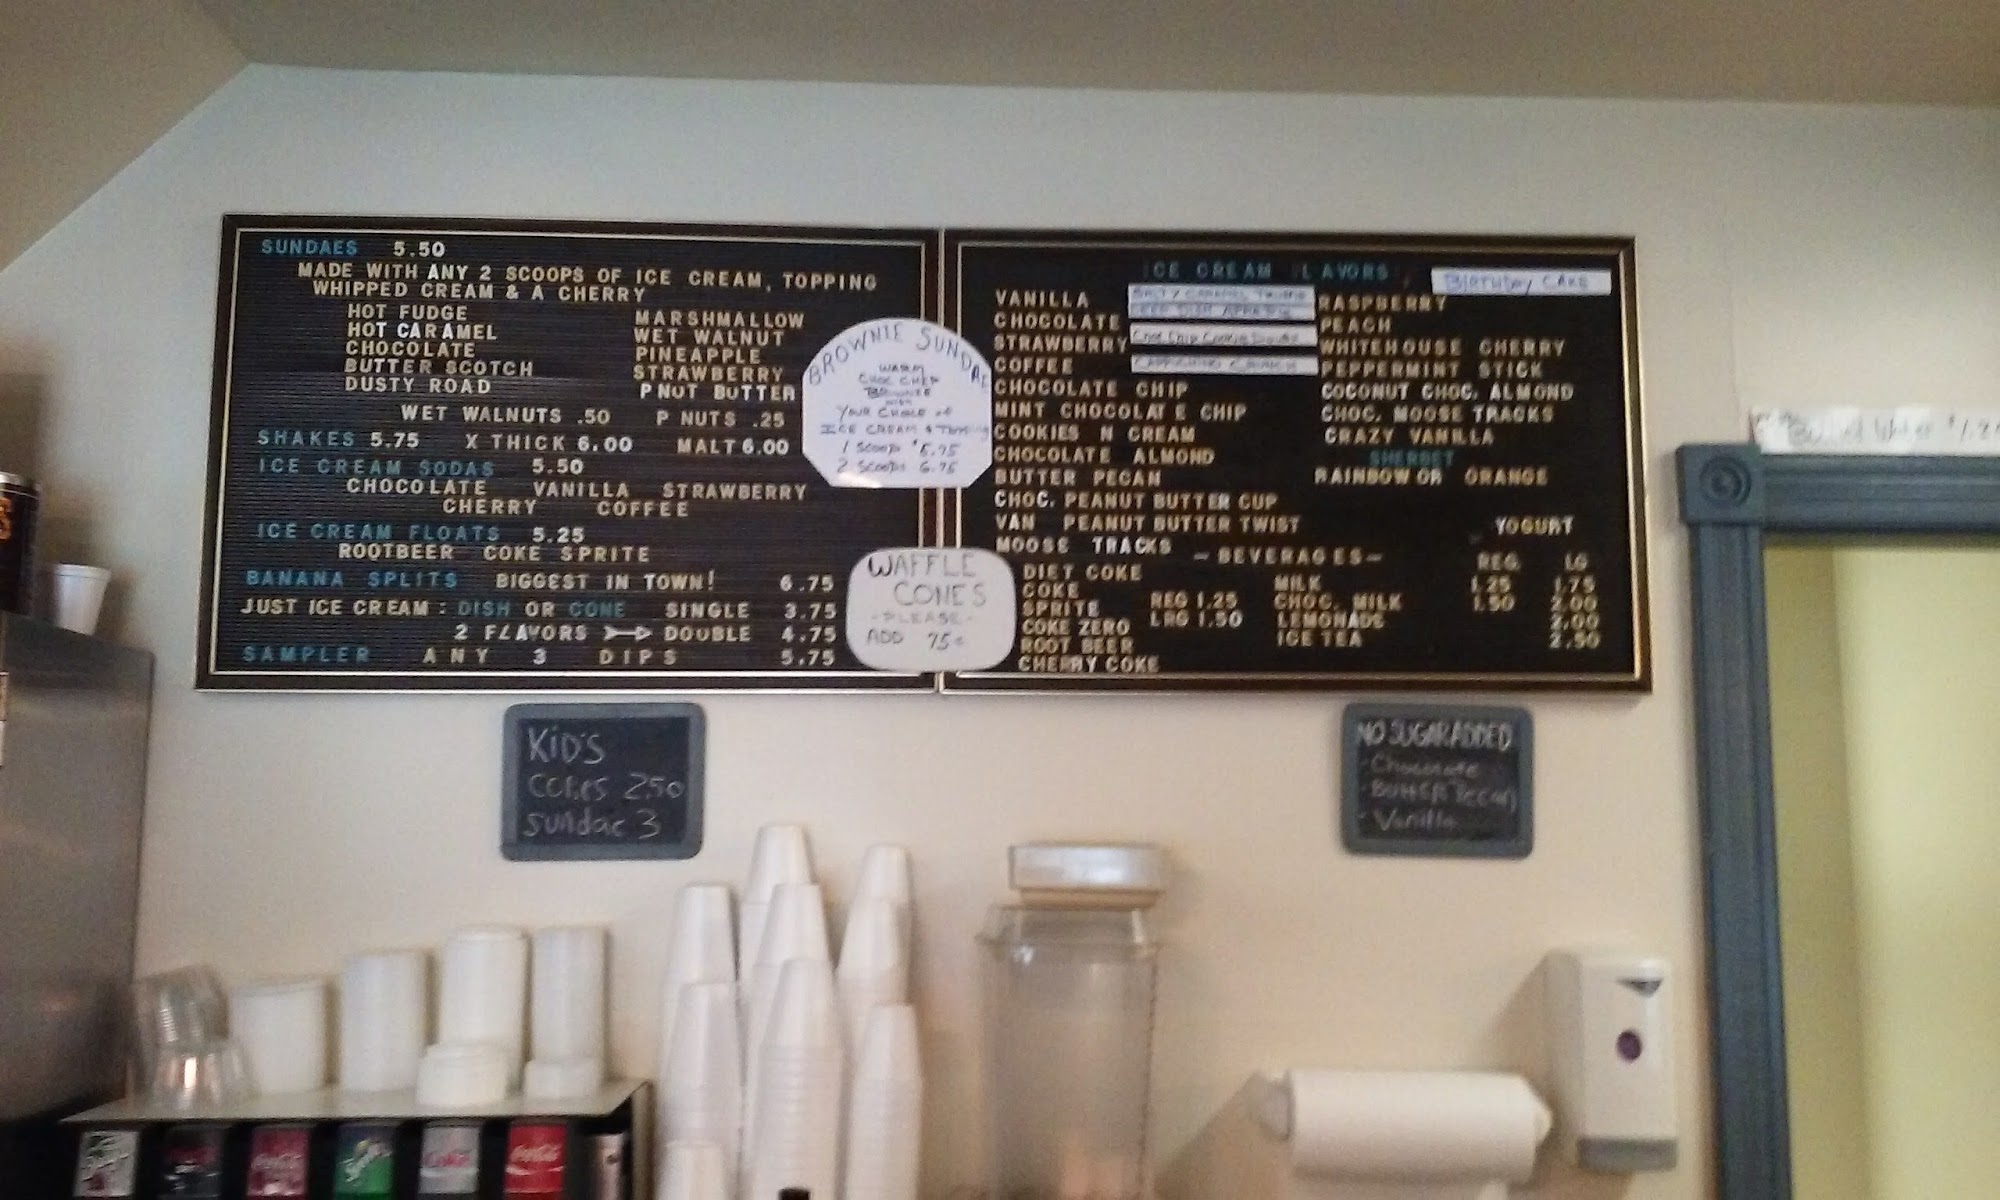 SUNDAES 5.50
MADE WITH ANY 2 SCOOPS OF ICE CREAM, TOPPING
WHIPPED CREAM & A CHERRY
HOT FUDGE MARSHMALLOW
HOT CARAMEL WET WALNUT
CHOCOLATE PINEAPPLE
BUTTER SCOTCH STRAWBERRY
DUSTY ROAD P NUT BUTTER
WET WALNUTS .50 P NUTS .25
SHAKES 5.75 X THICK 6.00 MALT 6.00
ICE CREAM SODAS 5.50
CHOCOLATE VANILLA STRAWBERRY
CHERRY COFFEE
ICE CREAM FLOATS 5.25
ROOTBEER COKE SPRITE
BANANA SPLITS BIGGEST IN TOWN! 6.75
JUST ICE CREAM : DISH OR CONE SINGLE 3.75
2 FLAVORS DOUBLE 4.75
SAMPLER ANY 3 DIPS 5.75
BROWNIE SUNDAE
WARM
CHOC CHIP
BROWNIE
WITH
YOUR CHOICE OF
ICE CREAM & TOPPING
1 SCOOP $5.75
2 SCOOPS 6.75
WAFFLE
CONES
-PLEASE-
ADD 75¢
ICE CREAM LAVORS
BIRTHDAY CAKE
VANILLA SALTY CARAMEL RASPBERRY
CHOCOLATE DEEP DISH APPLE PIE PEACH
STRAWBERRY Choc Chip Cookie Dough WHITEHOUSE CHERRY
COFFEE CAPPUCCINO CRUNCH PEPPERMINT STICK
CHOCOLATE CHIP COCONUT CHOC. ALMOND
MINT CHOCOLATE CHIP CHOC. MOOSE TRACKS
COOKIES N CREAM CRAZY VANILLA
CHOCOLATE ALMOND SHERBET
BUTTER PECAN RAINBOW OR ORANGE
CHOC. PEANUT BUTTER CUP
VAN PEANUT BUTTER TWIST YOGURT
MOOSE TRACKS
-BEVERAGES-
REG LG
DIET COKE MILK 1.25 1.75
COKE REG 1.25 CHOC. MILK 1.50 2.00
SPRITE LRG 1.50 LEMONADE 2.00
COKE ZERO ICE TEA 2.50
ROOT BEER
CHERRY COKE
Water $1.2
KID'S
cones 2.50
sundae 3
NO SUGAR ADDED
- Chocolate
- BUTTER Pecan
- Vanilla
Sprite
Coca-Cola